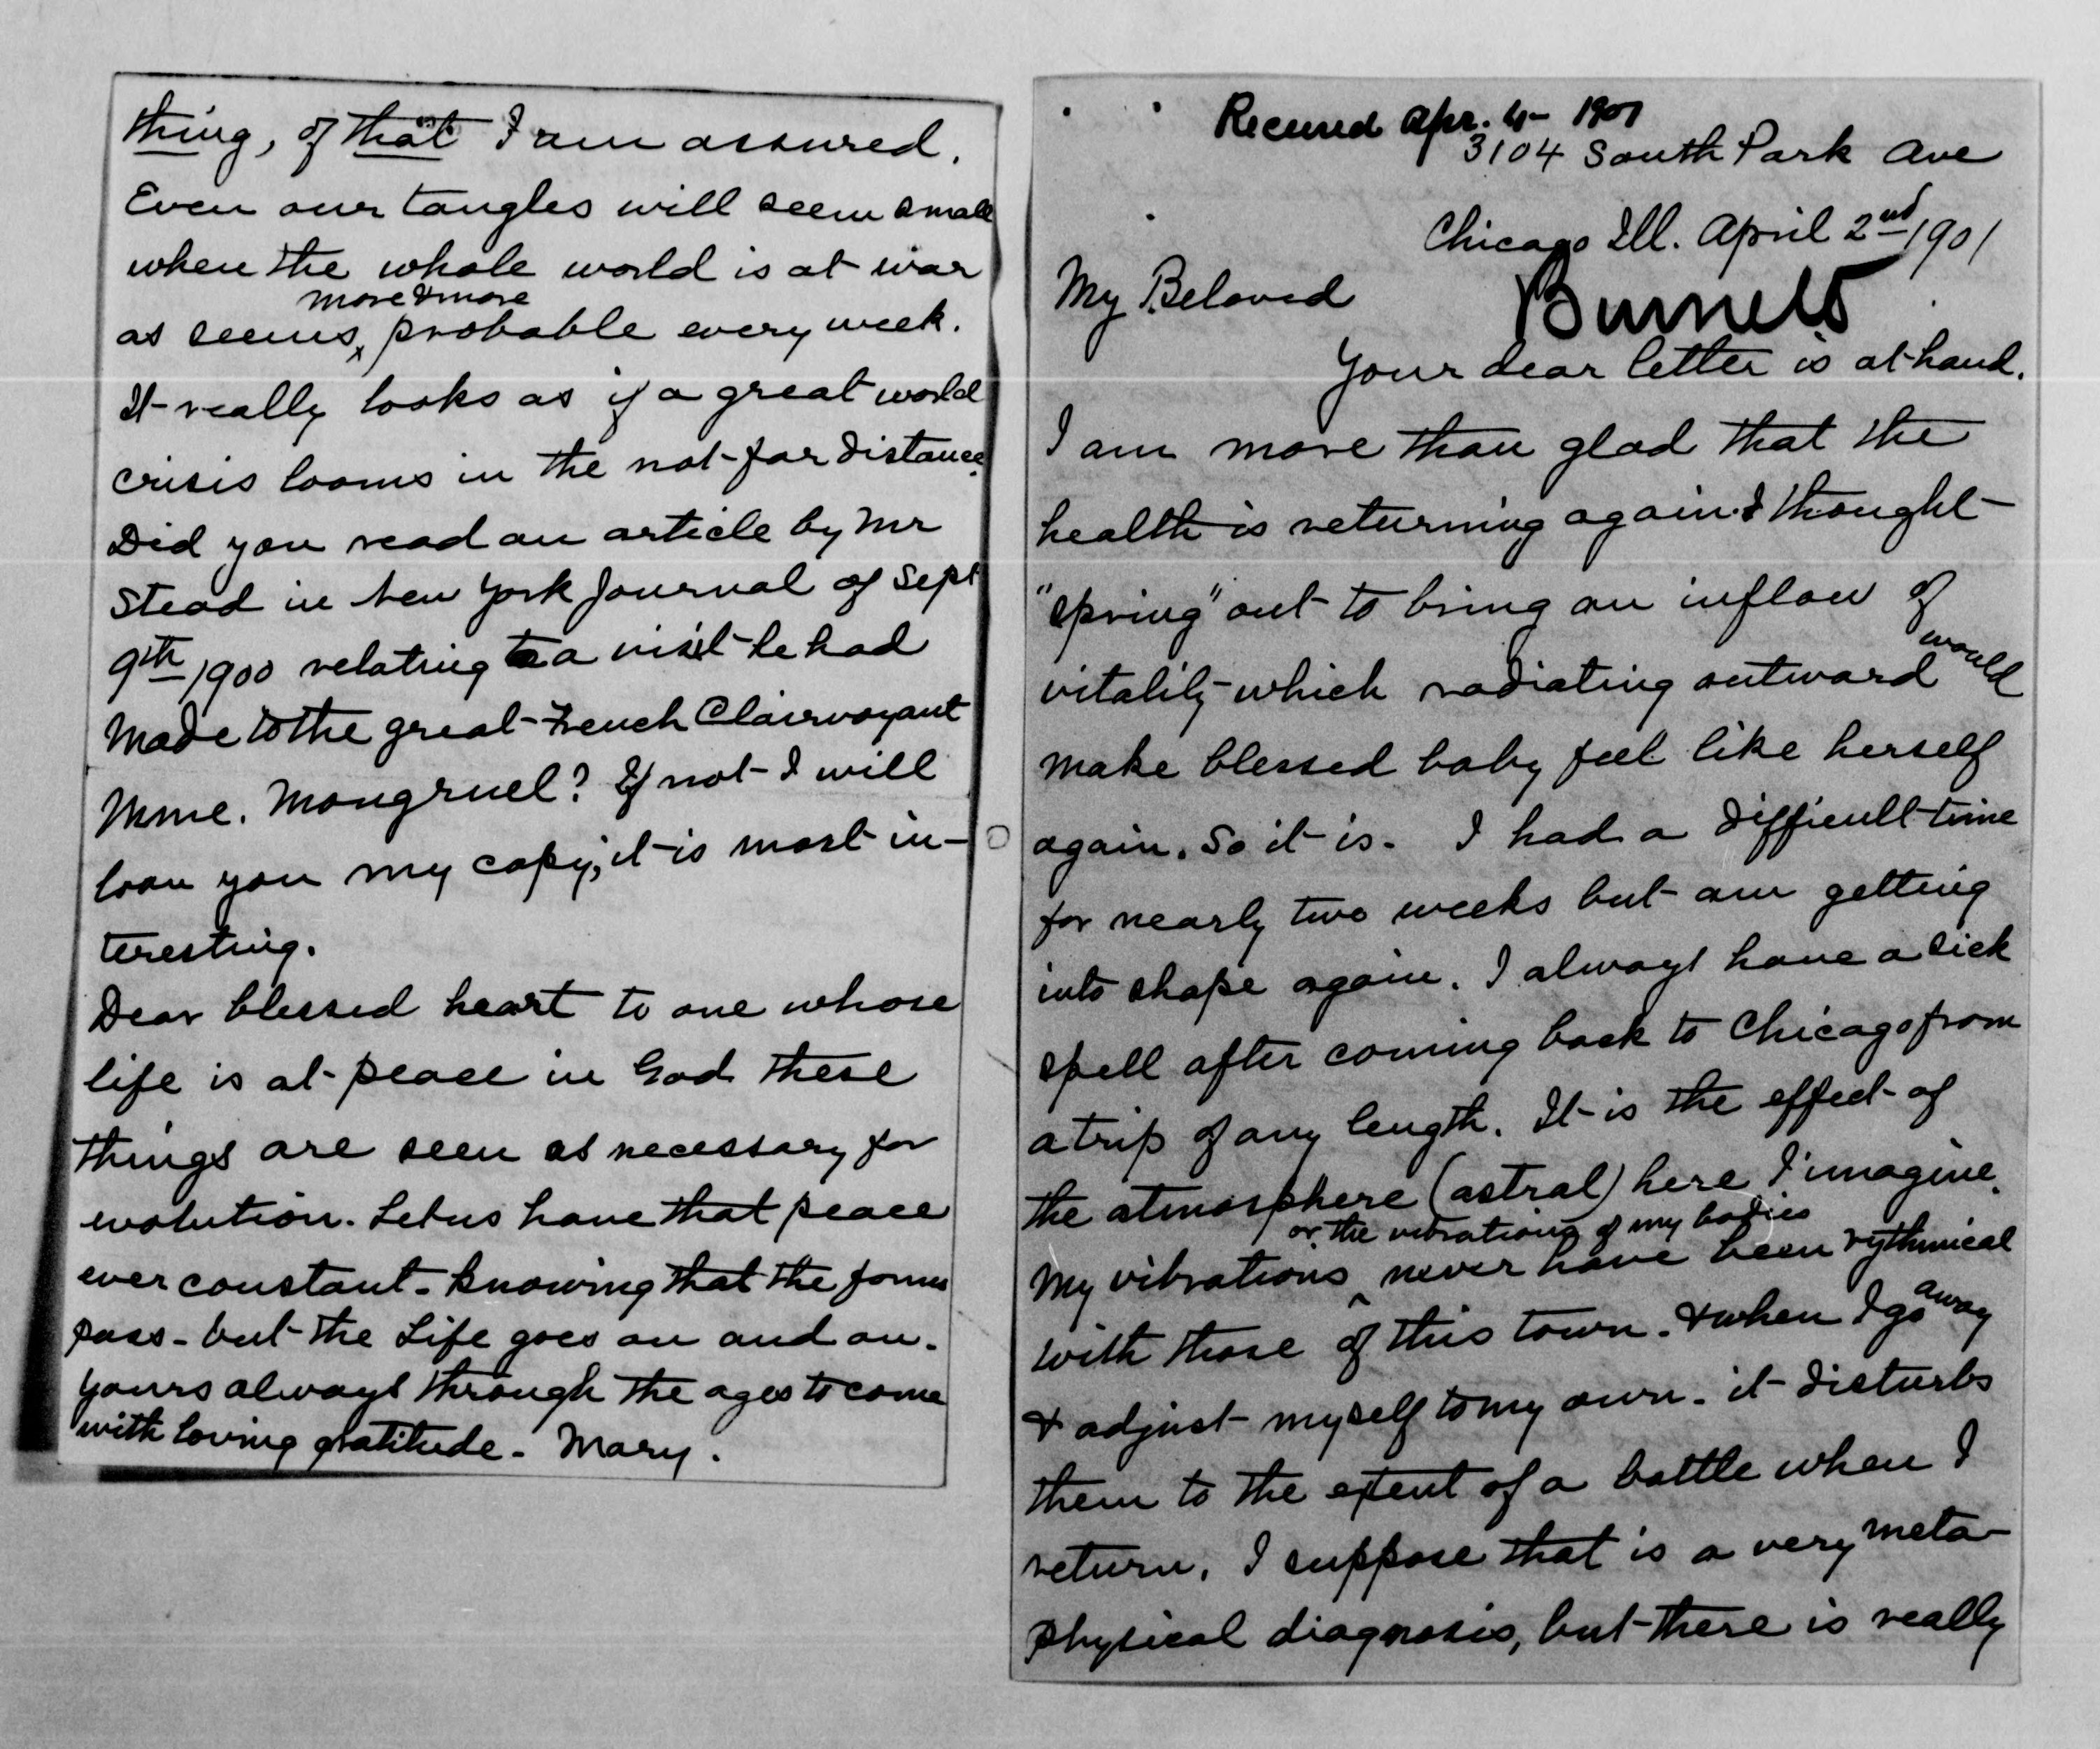 thing, of that I am assured.
Even our tangles will seem small
when the whole world is at war
more & more
as seems, probable every week.
It really looks as if a great world
crisis looms in the not far distance.
Did you read an article by Mr
Stead in New York Journal of Sept
9th 1900 relating to a visit he had
made to the great French Clairvoyant
Mme. Mongruel? If not I will
loan you my copy; it is most in-
teresting.
Dear blessed heart to one whose
life is at peace in God these
things are seen as necessary for
evolution. Let us have that peace
ever constant - knowing that the forms
pass - but the Life goes on and on.
Yours always through the ages to come
with loving gratitude - Mary.
Received Apr. 4 - 1901
3104 South Park Ave
Chicago Ill. April 2nd 1901
My Beloved
Burnett
Your dear letter is at hand.
I am more than glad that the
health is returning again & thought
"spring" out to bring an inflow of
would
vitality which radiating outward
make blessed baby feel like herself
again. So it is. I had a difficult time
for nearly two weeks but am getting
into shape again. I always have a sick
spell after coming back to Chicago from
a trip of any length. It is the effect of
the atmosphere (astral) here I imagine.
or the vibrations of my bodies
My vibrations ^ never have been rythmical
with those of this town. & when I go away
& adjust myself to my own - it disturbs
them to the extent of a battle when I
return. I suppose that is a very meta-
physical diagnosis, but there is really